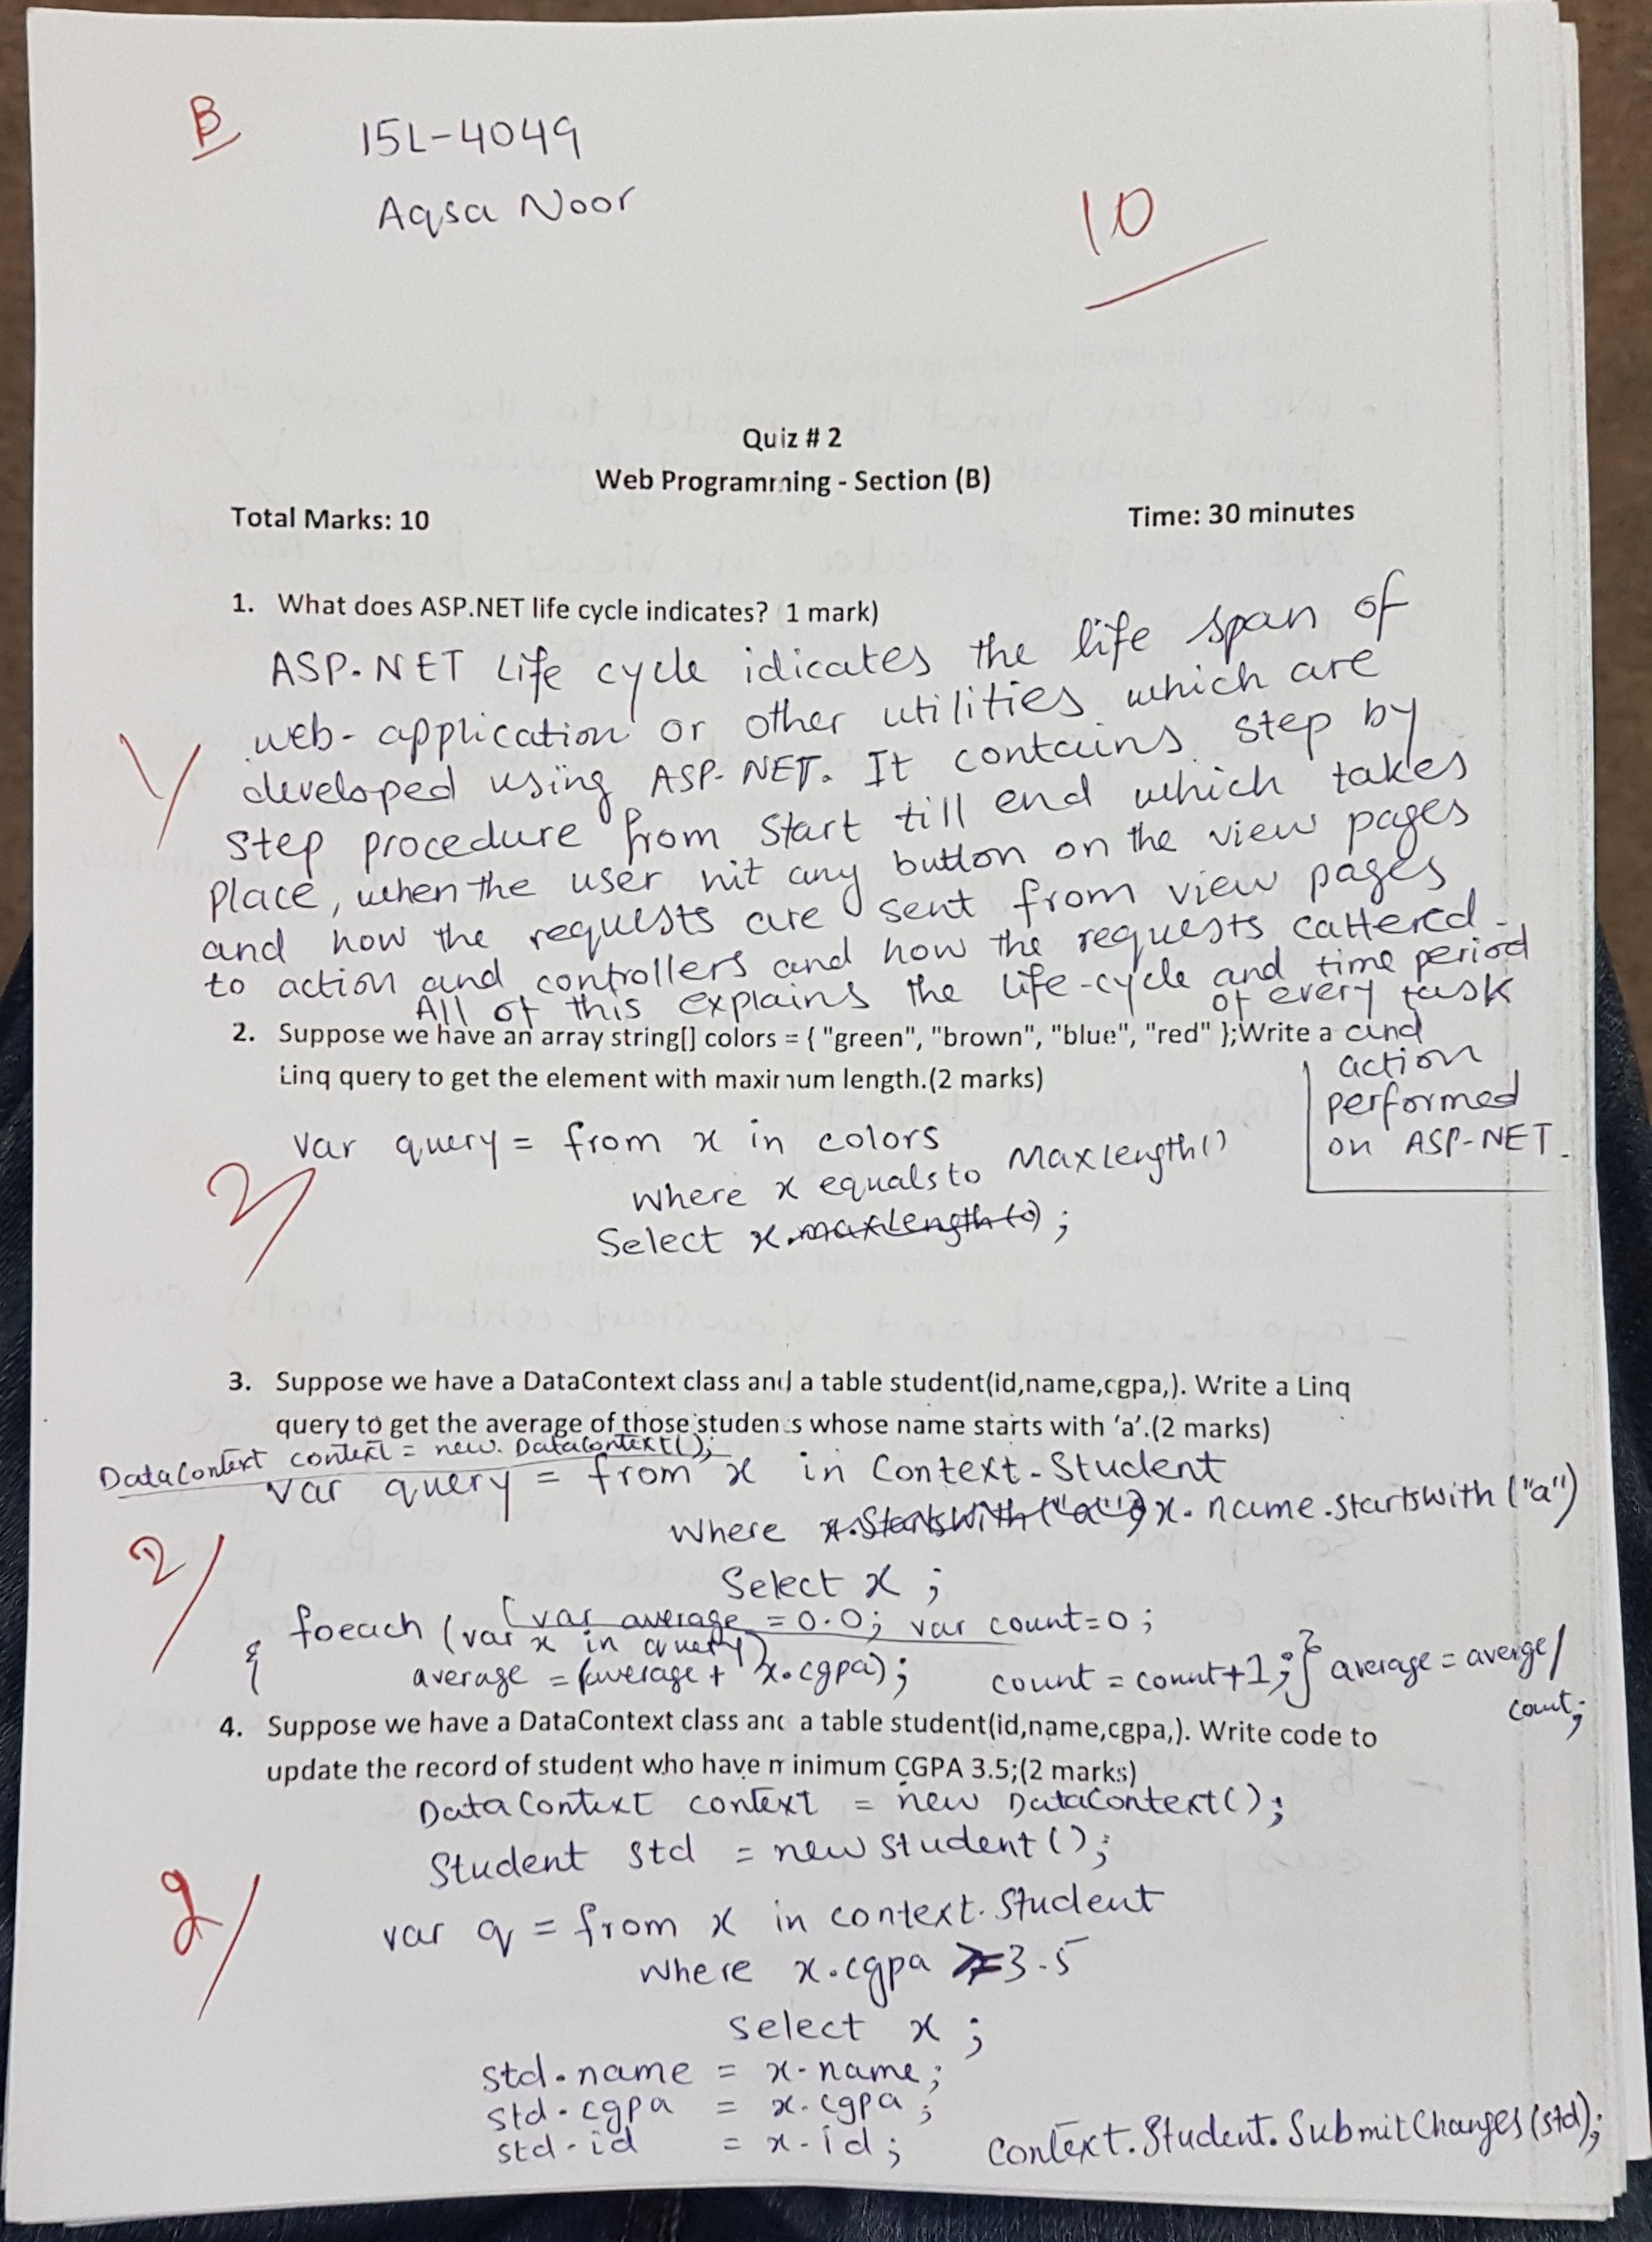 B
15L-4049
Aqsa Noor
10
Quiz # 2
Web Programming - Section (B)
Total Marks: 10 Time: 30 minutes
1. What does ASP.NET life cycle indicates? 1 mark)
ASP.NET Life cycle idicates the life span of
web-application or other utilities which are
developed using ASP-NET. It contains step by
1
step procedure from start till end which takes
place, when the user hit any button on the view pages
and how the requests are sent from view pages
to action and controllers and how the requests cattered.
All of this explains the life-cycle and time period
of every task
and
action
performed
on ASP-NET.
2. Suppose we have an array string[] colors = { "green", "brown", "blue", "red" };Write a
Linq query to get the element with maximum length.(2 marks)
var query = from x in colors
where x equalsto MaxLength()
2
Select x.maxLength() ;
3. Suppose we have a DataContext class and a table student(id,name,cgpa,). Write a Linq
query to get the average of those students whose name starts with 'a'.(2 marks)
DataContext context = new. DataContext();
var query = from x in Context.Student
Where x.StartsWith("a") x. name.startsWith ("a")
2
Select x ;
var average = 0.0; var count=0 ;
foeach (var x in query)
{ average = (average + x.cgpa); count = count+1; } average = averge/
count;
4. Suppose we have a DataContext class and a table student(id,name,cgpa,). Write code to
update the record of student who have minimum CGPA 3.5;(2 marks)
DataContext context = new DataContext();
Student std = new student();
2
var q = from x in context.Student
where x.cgpa >=3.5
select x ;
std.name = x.name;
std.cgpa = x.cgpa;
std.id = x.id; Context.Student.SubmitChanges(std);